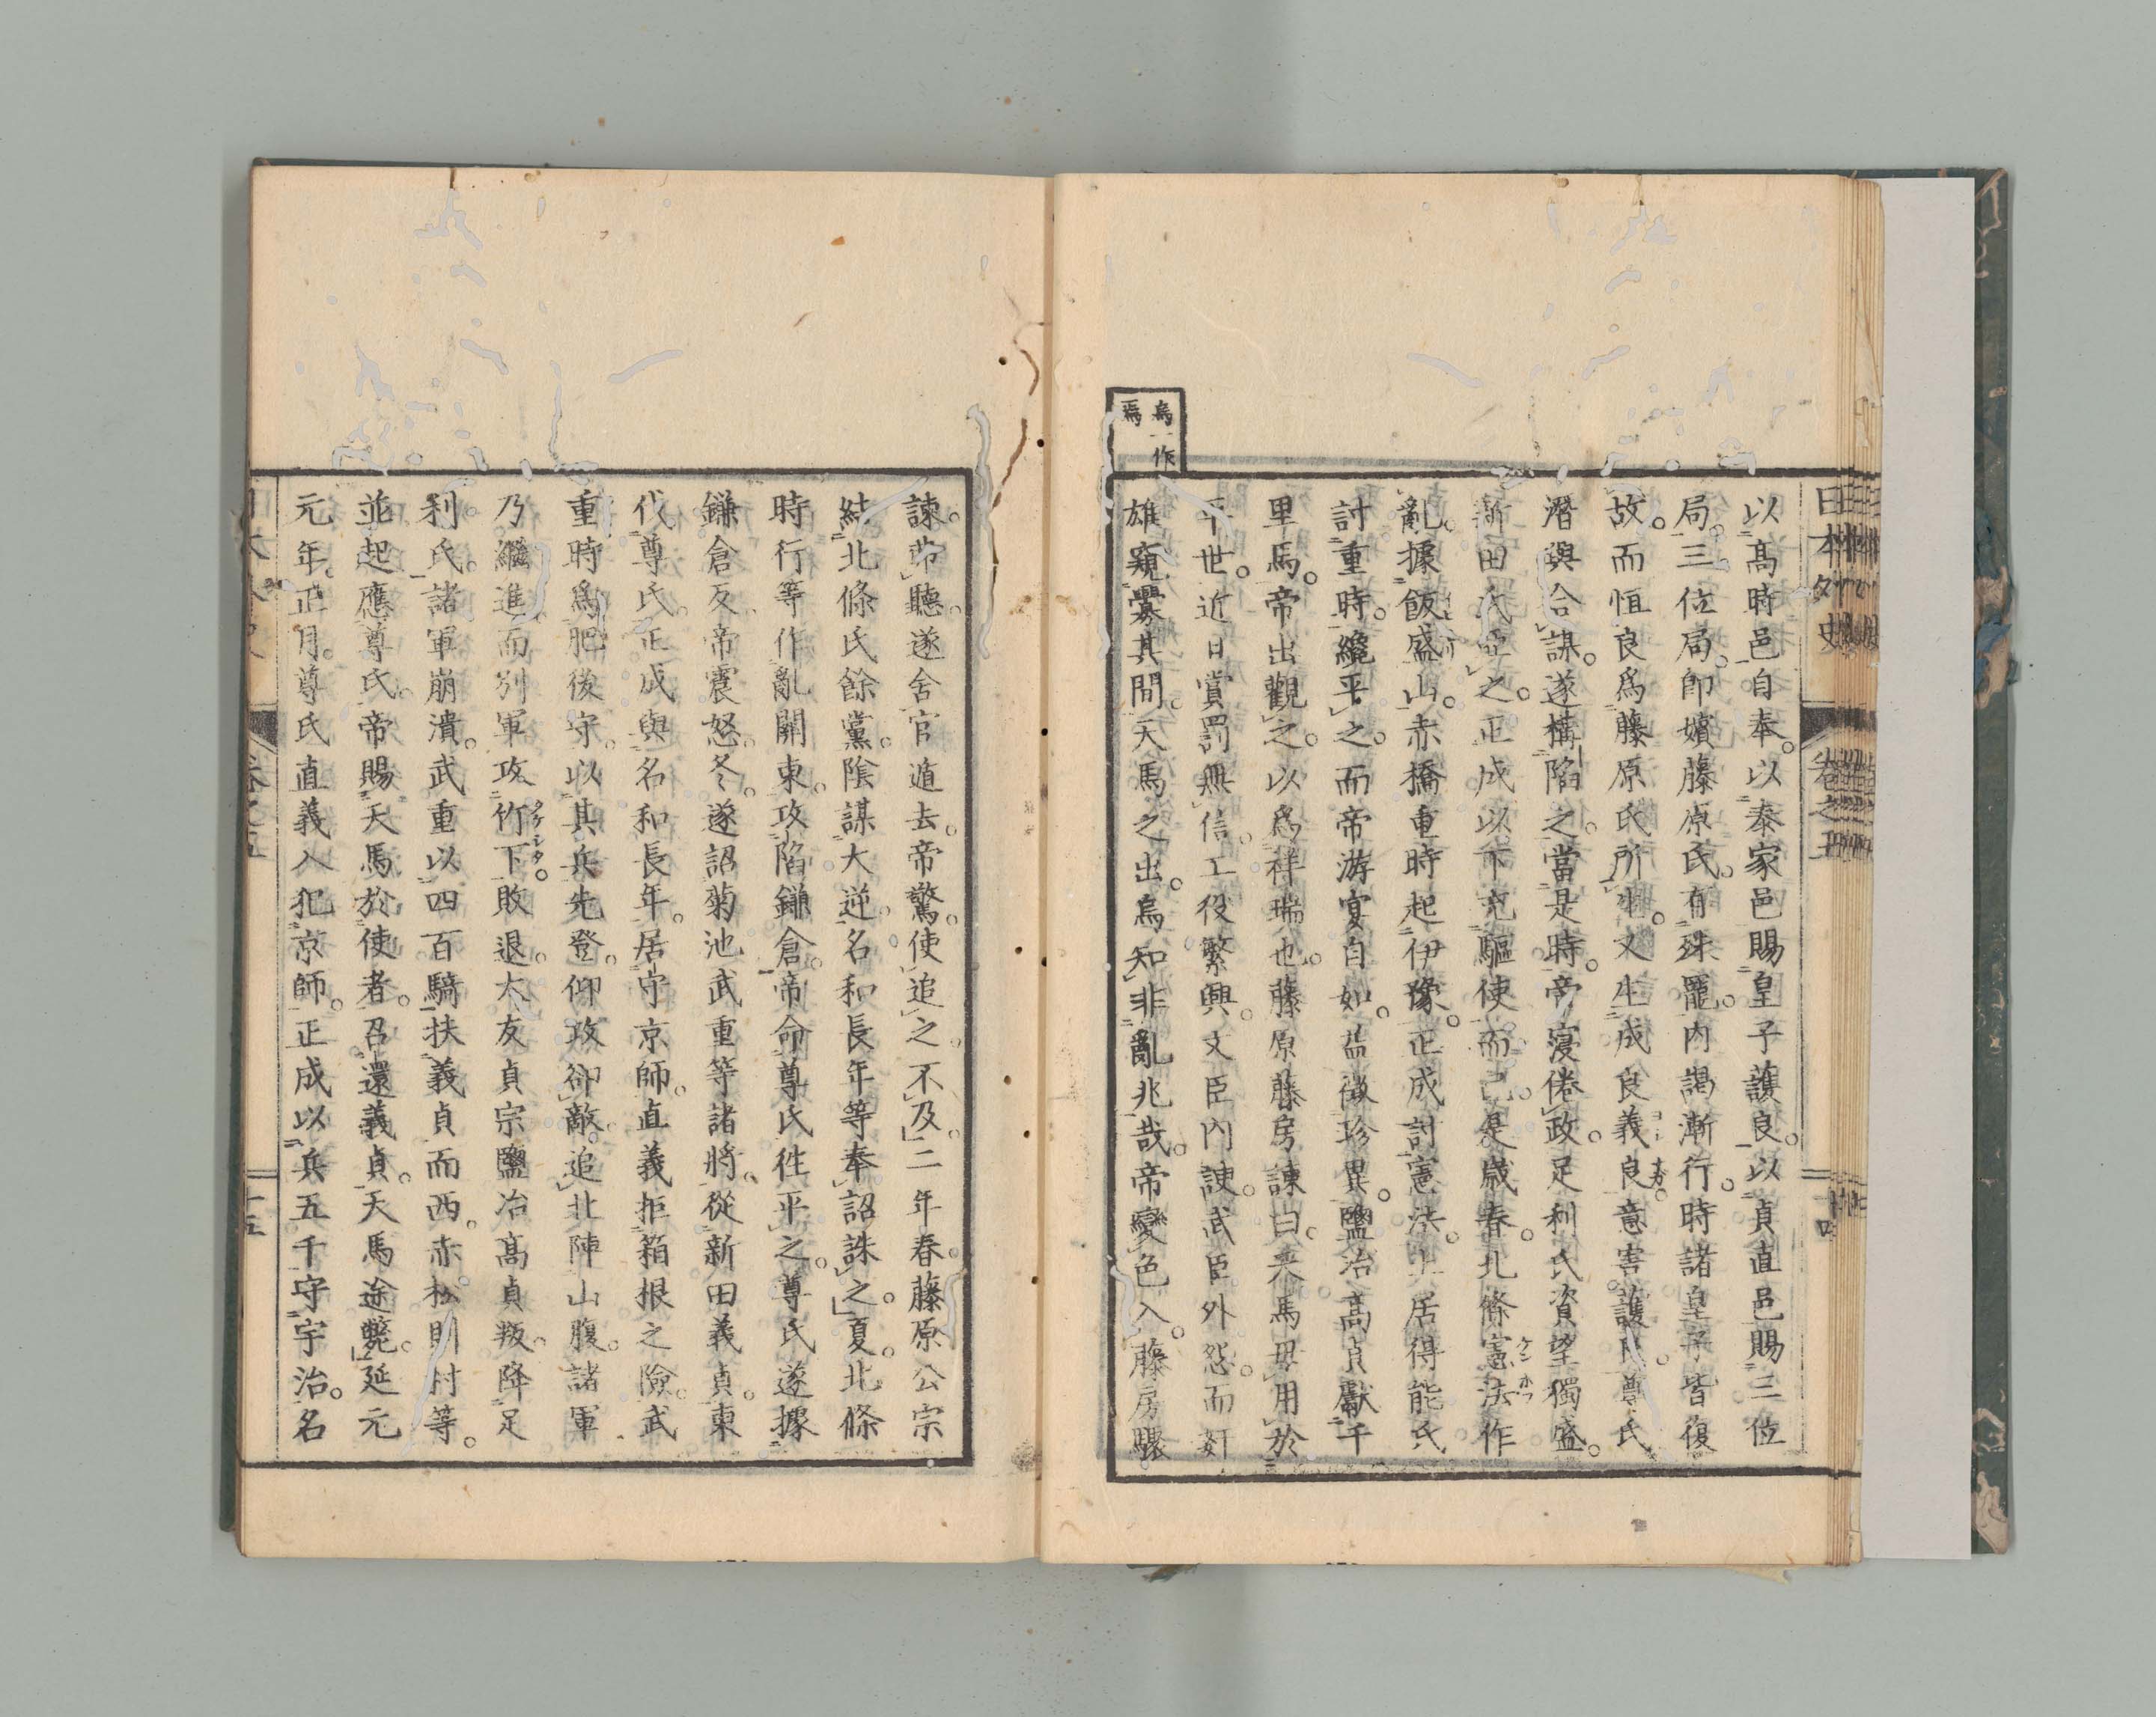 日本外史
卷之五
以高時邑自奉。以泰家邑賜皇子護良。以貞直邑賜三位
局。三位局。即嬪藤原氏。有殊寵。内謁漸行。時諸皇子皆復
故。而恒良爲藤原氏所生。又生成良義良。意害護良。尊氏
潛與合謀。遂構陷之。當是時。帝寖倦政。足利氏資望獨盛。
新田氏亞之。正成以下充驅使而已。是歲春。北條憲法作
亂。據飯盛山。赤橋重時起伊豫。正成討憲法。土居得能氏
討重時。纔平之。而帝游宴自如。益徵珍異。鹽冶高貞獻千
里馬。帝出觀之。以爲祥瑞也。藤原藤房諫曰。夫馬毋用於
平世。近日賞罰無信。工役繁興。文臣內諛。武臣外怨。而奸
雄窺釁其間。天馬之出。烏知非亂兆哉。帝變色入。藤房驟
烏一作
焉
諫。弗聽。遂舍官遁去。帝驚。使追之不及。二年春。藤原公宗
結北條氏餘黨。陰謀大逆。名和長年等奉詔誅之。夏。北條
時行等作亂關東。攻陷鎌倉。帝命尊氏往平之。尊氏遂據
鎌倉反。帝震怒。冬。遂詔菊池武重等諸將。從新田義貞。東
伐尊氏。正成與名和長年。居守京師。直義拒箱根之險。武
重時爲肥後守。以其兵先登。仰攻卻敵。追北陣山腹。諸軍
乃繼進。而別軍攻竹下敗退。大友貞宗鹽冶高貞叛。降足
利氏。諸軍崩潰。武重以四百騎扶義貞而西。赤松則村等。
並起應尊氏。帝賜天馬於使者。召還義貞。天馬途斃。延元
元年。正月。尊氏直義入犯京師。正成以兵五千守宇治。名